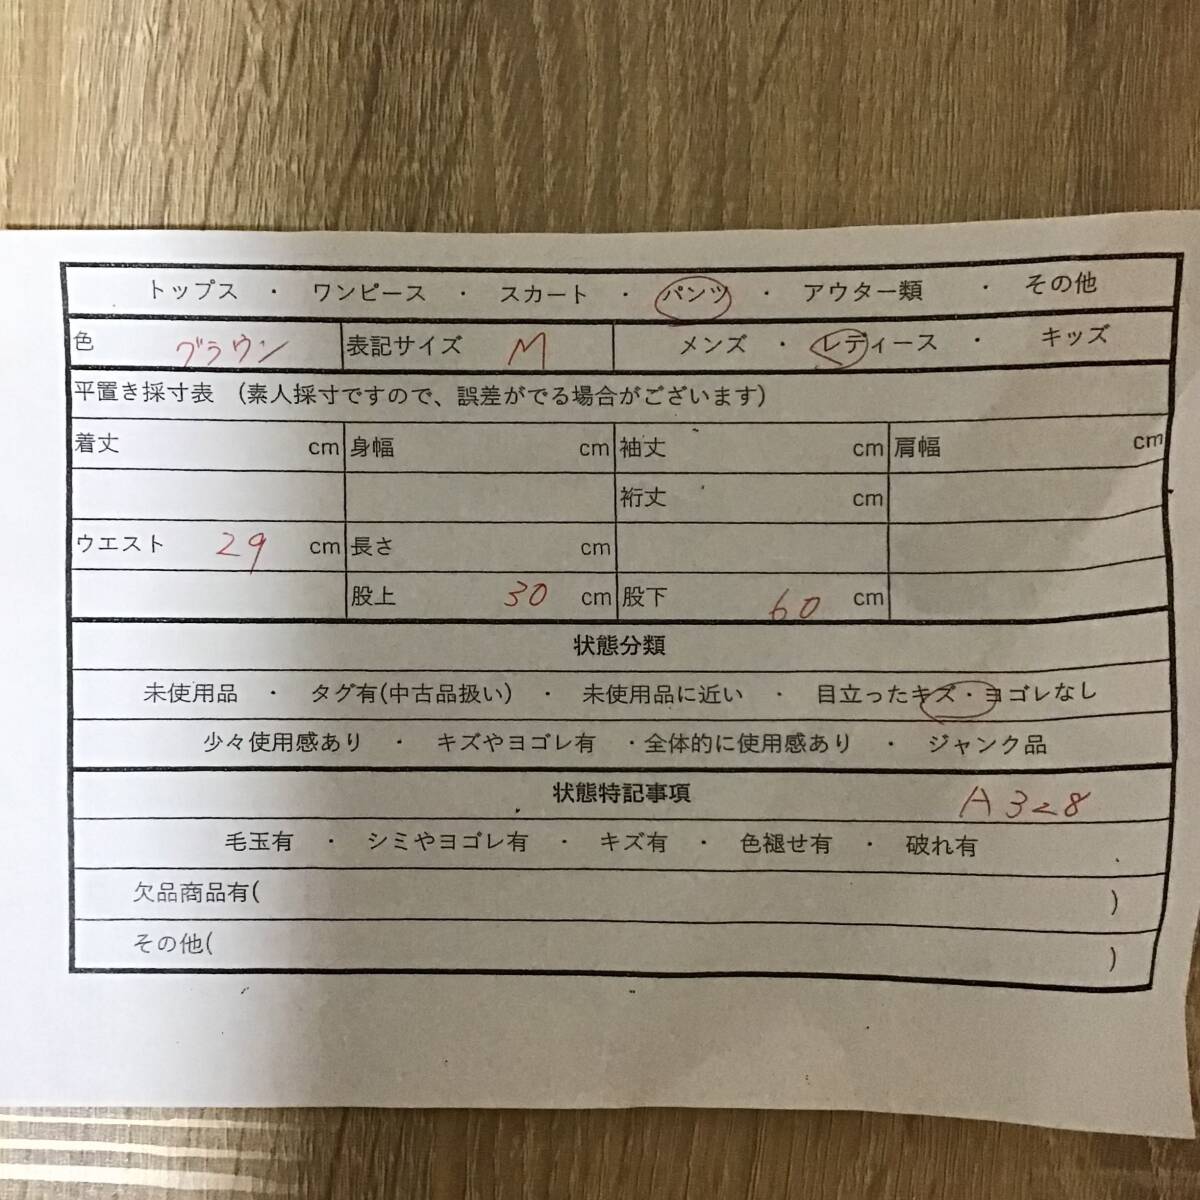 トップス ・ ワンピース ・ スカート ・ パンツ ・ アウター類 ・ その他
色 ブラウン 表記サイズ M メンズ ・ レディース ・ キッズ
平置き採寸表 (素人採寸ですので、誤差がでる場合がございます)
着丈 cm 身幅 cm 袖丈 cm 肩幅 cm
裄丈 cm
ウエスト 29 cm 長さ cm
股上 30 cm 股下 60 cm
状態分類
未使用品 ・ タグ有(中古品扱い) ・ 未使用品に近い ・ 目立ったキズ・ヨゴレなし
少々使用感あり ・ キズやヨゴレ有 ・全体的に使用感あり ・ ジャンク品
状態特記事項 A328
毛玉有 ・ シミやヨゴレ有 ・ キズ有 ・ 色褪せ有 ・ 破れ有
欠品商品有( )
その他( )